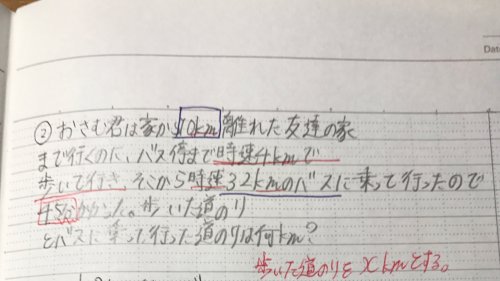 Date
② おさむ君は家から10km離れた友達の家
まで行くのに、バス停まで時速4kmで
歩いて行き そこから時速32kmのバスに乗って行ったので
45分かかった。歩いた道のり
とバスに乗って行った道のりは何km?
歩いた道のりを xkmとする。